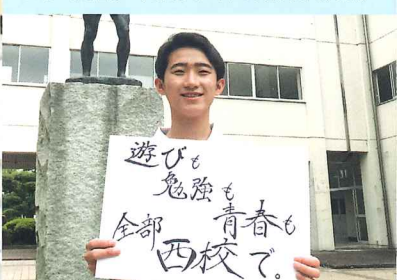 遊びも
勉強も
全部 青春も
西校で。